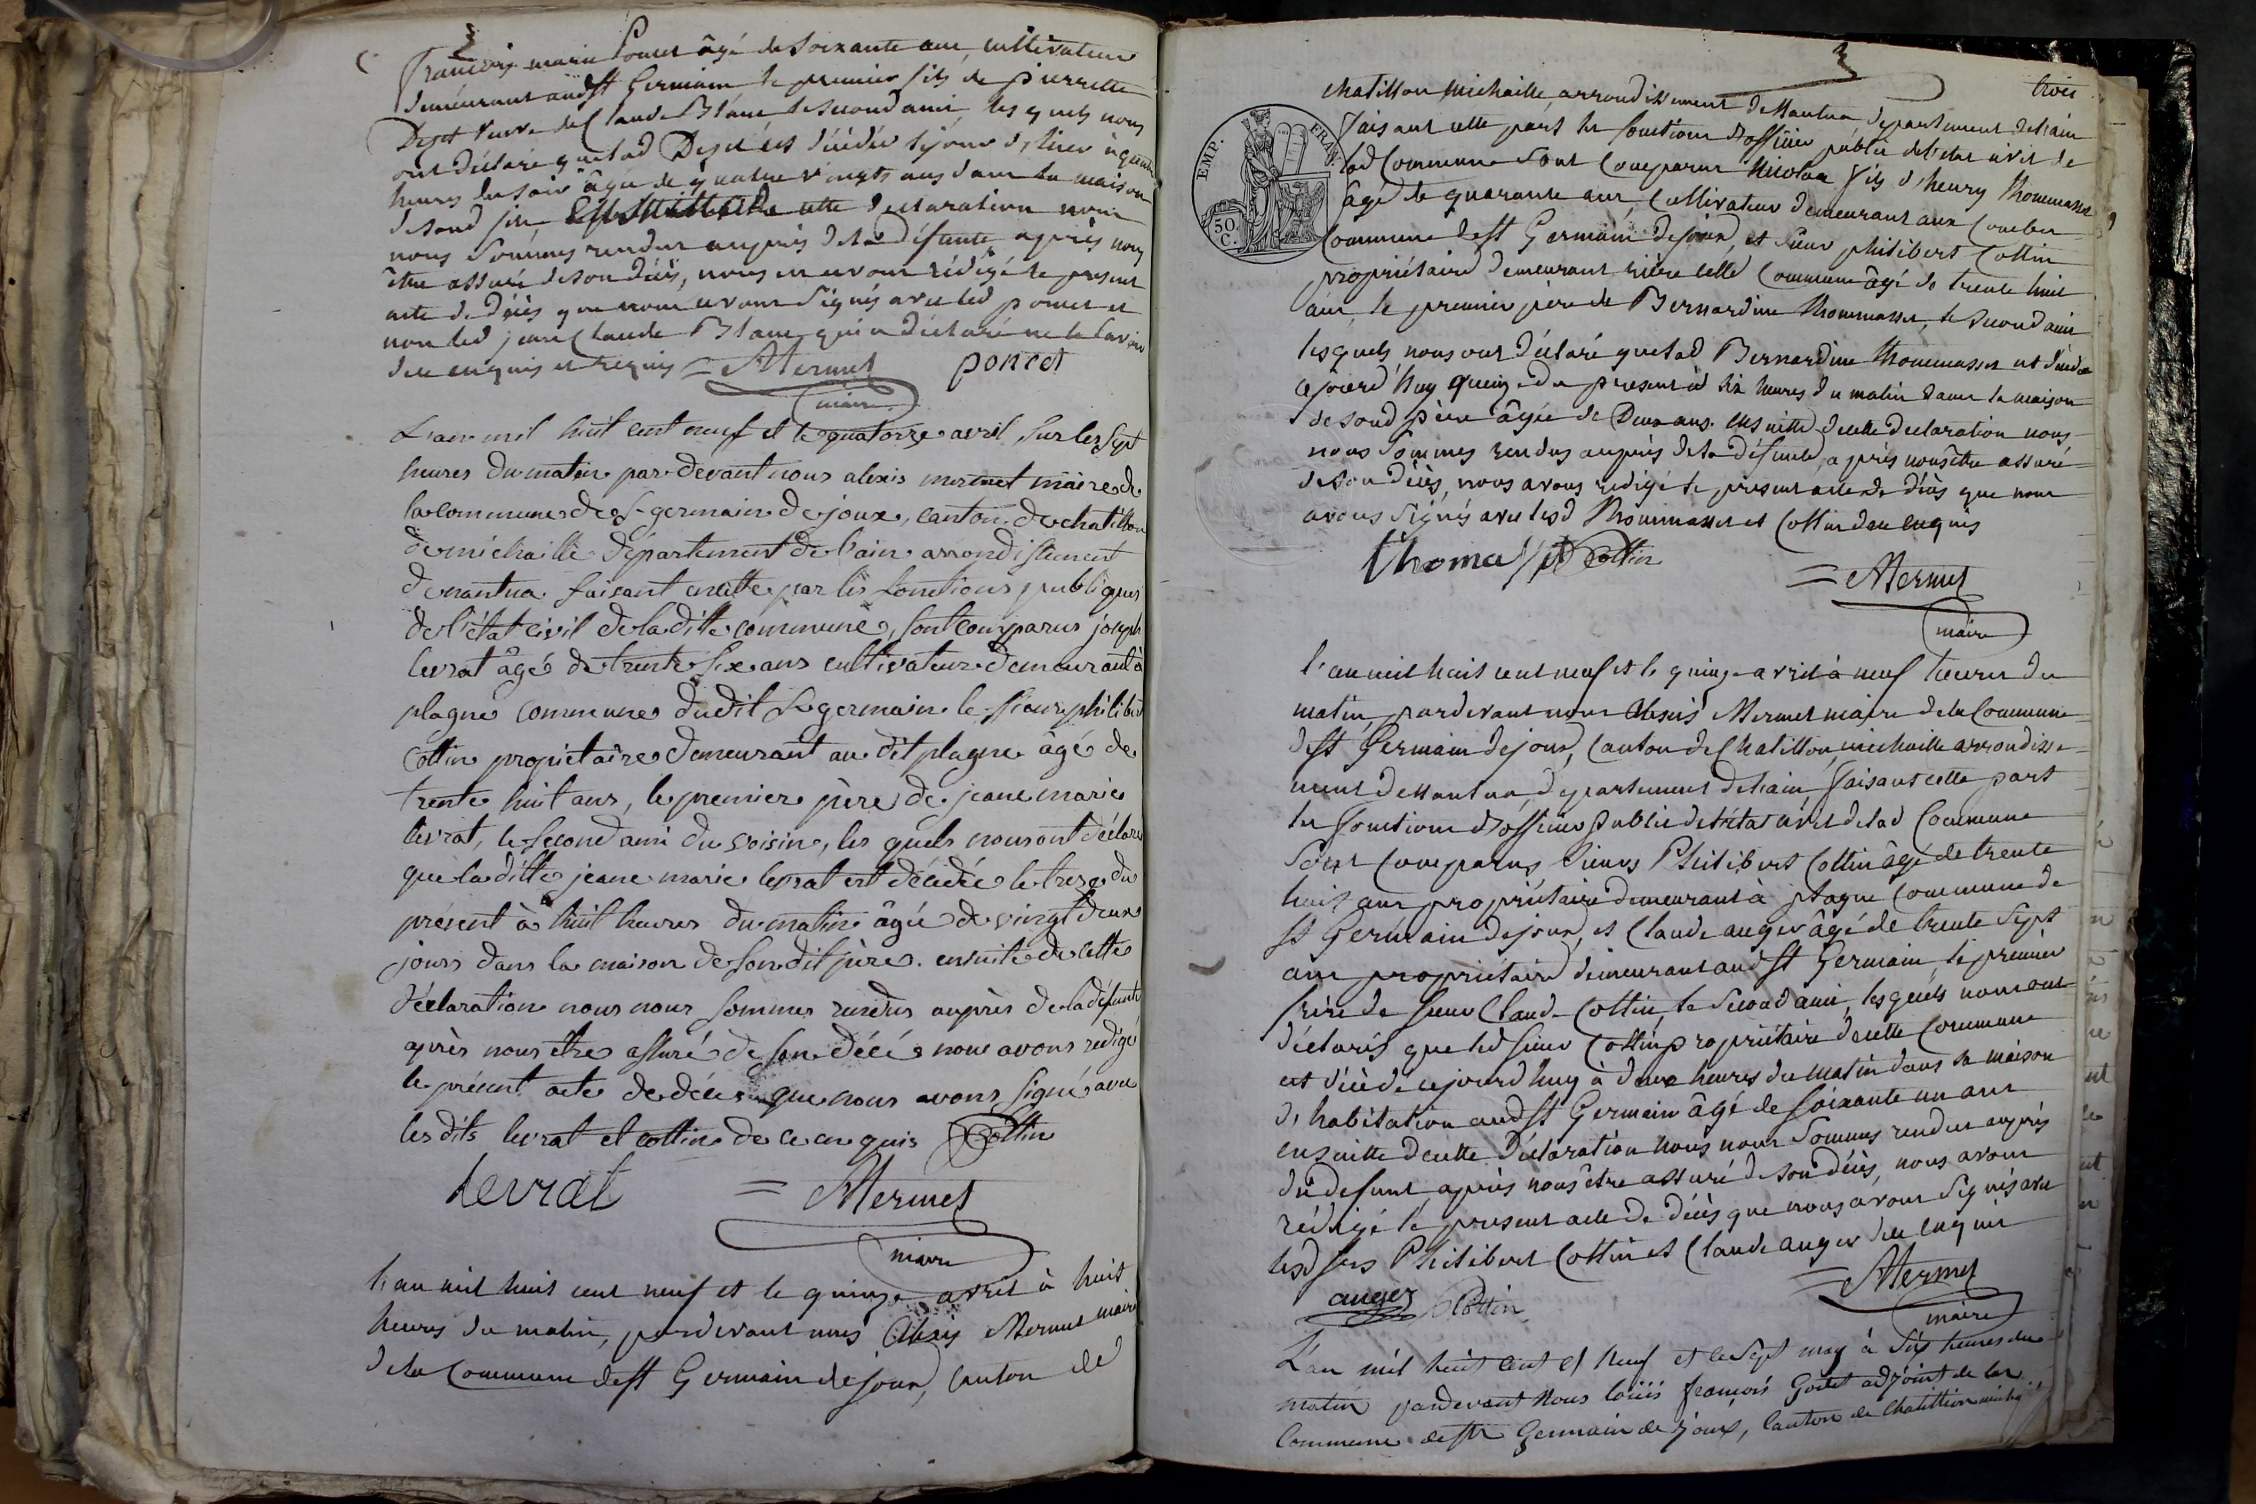 françois marie Poncet âgé de soixante ans, cultivateur
demeurant aud St Germain le premier fils de pierrette
veuve de Claude Blanc le second ami, les quels nous
ont déclaré que lad est décédée
heures du soir âgée de quatre vingts ans dans la maison
de sond fils, cette declaration nous
nous sommes rendus auprès de la défunte après nous
être assuré de son décès, nous en avons rédigé le present
acte de décès que nous avons signés avec led poncet et
non led jean Claude Blanc qui a déclaré ne le savoir
de ce enquis et requis = AMermet poncet
maire
L'an mil huit cent neuf et le quatorze avril, sur les sept
heures du matin par devant nous alexis mermet maire de
la commune de St germain de joux, canton de chatillon
de michaille département de l'ain arrondissement
de nantua faisant en cette par les fonctions publiques
de l'état civil de la ditte commune, sont comparus joseph
levrat âgé de trente six ans cultivateur demeurant à
plagne commune dudit St germain le sieur philibert
Cottin propietaire demeurant au dit plagne âgé de
trente huit ans, le premier père de jeane marie
levrat, le second ami du voisin, les quels nous ont déclaré
que la ditte jeane marie levrat est décédée le treze du
présent à huit heures du matin âgée de vingt deux
jours dans la maison de son dit père. ensuite de cette
déclaration nous nous sommes rendus auprès de la défunte
après nous etre assuré de son décés nous avons redigé
le présent acte de décés que nous avons signé avec
les dits levrat et cottin de ce en quis Cottin
Levrat = AMermet
maire
l'an mil huit cent neuf et le quinze avril à huit
heures du matin, pardevant nous Alexis Mermet maire
de la Commune de St Germain de joux, canton de
trois
chatillon michaille, arrondissement de Nantua departement de l'ain
faisant cette part les fonctions d'officier public de l'etat civil de
lad Commune sont comparus Nicolas fils d'heury Thommasset
âgé de quarante ans, Cultivateur demeurant aux
Commune de St Germain de joux, et sieur philibert Cottin
propriétaire demeurant rière celle Commune âgé de trente huit
ans, le premier père de Bernardine thommasset, le second ami
lesquels nous ont déclaré que lad Bernardine thommasset est décédée
cejourd'huy quinze du present à six heures du matin dans la maison
de sond père âgée de Deux ans. ensuitte de cette declaration nous
nous sommes rendus auprès de la défunte, après nous être assuré
de son décès, nous avons redigé le present acte de décès que nous
avons signés avec lesd Thommasset et Cottin de ce enquis
thoma Cottin
= AMermet
maire
l'an mil huit cent neuf et le quinze avril à neuf heures du
matin, pardevant nous Alexis Mermet maire de la Commune
de St Germain de joux, canton de Chatillon michaille arrondisse-
ment de Nantua, departement de l'ain, faisant cette part
les fonctions d'officier public de l'état civil de lad Commune
sont comparus sieurs Philibert Cottin âgé de trente
huit ans propriétaire demeurant à plagne Commune de
St Germain de joux, et Claude auger âgé de trente sept
ans propriétaire demeurant aud St Germain, le premier
frère de sieur Claude Cottin, le second ami, lesquels nous ont
déclarés que led sieur Cottin propriétaire de cette Commune
est décédé cejourd huy à deux heures du matin dans sa maison
d'habitation aud St Germain âgé de soixante un ans
ensuitte de cette déclaration nous nous sommes rendus auprès
du defunt, après nous être assuré de son décès, nous avons
rédigé le present acte de décès que nous avons signés avec
lesd srs Philibert Cottin et Claude auger de ce enquis
= AMermet
auger Cottin
maire
L'an mil huit cent et Neuf et le sept may à six heures du
matin pardevant Nous loüis françois adjoint de la
Commune de St Germain de joux, canton de Chatillion
EMP. FRAN.
50. C.